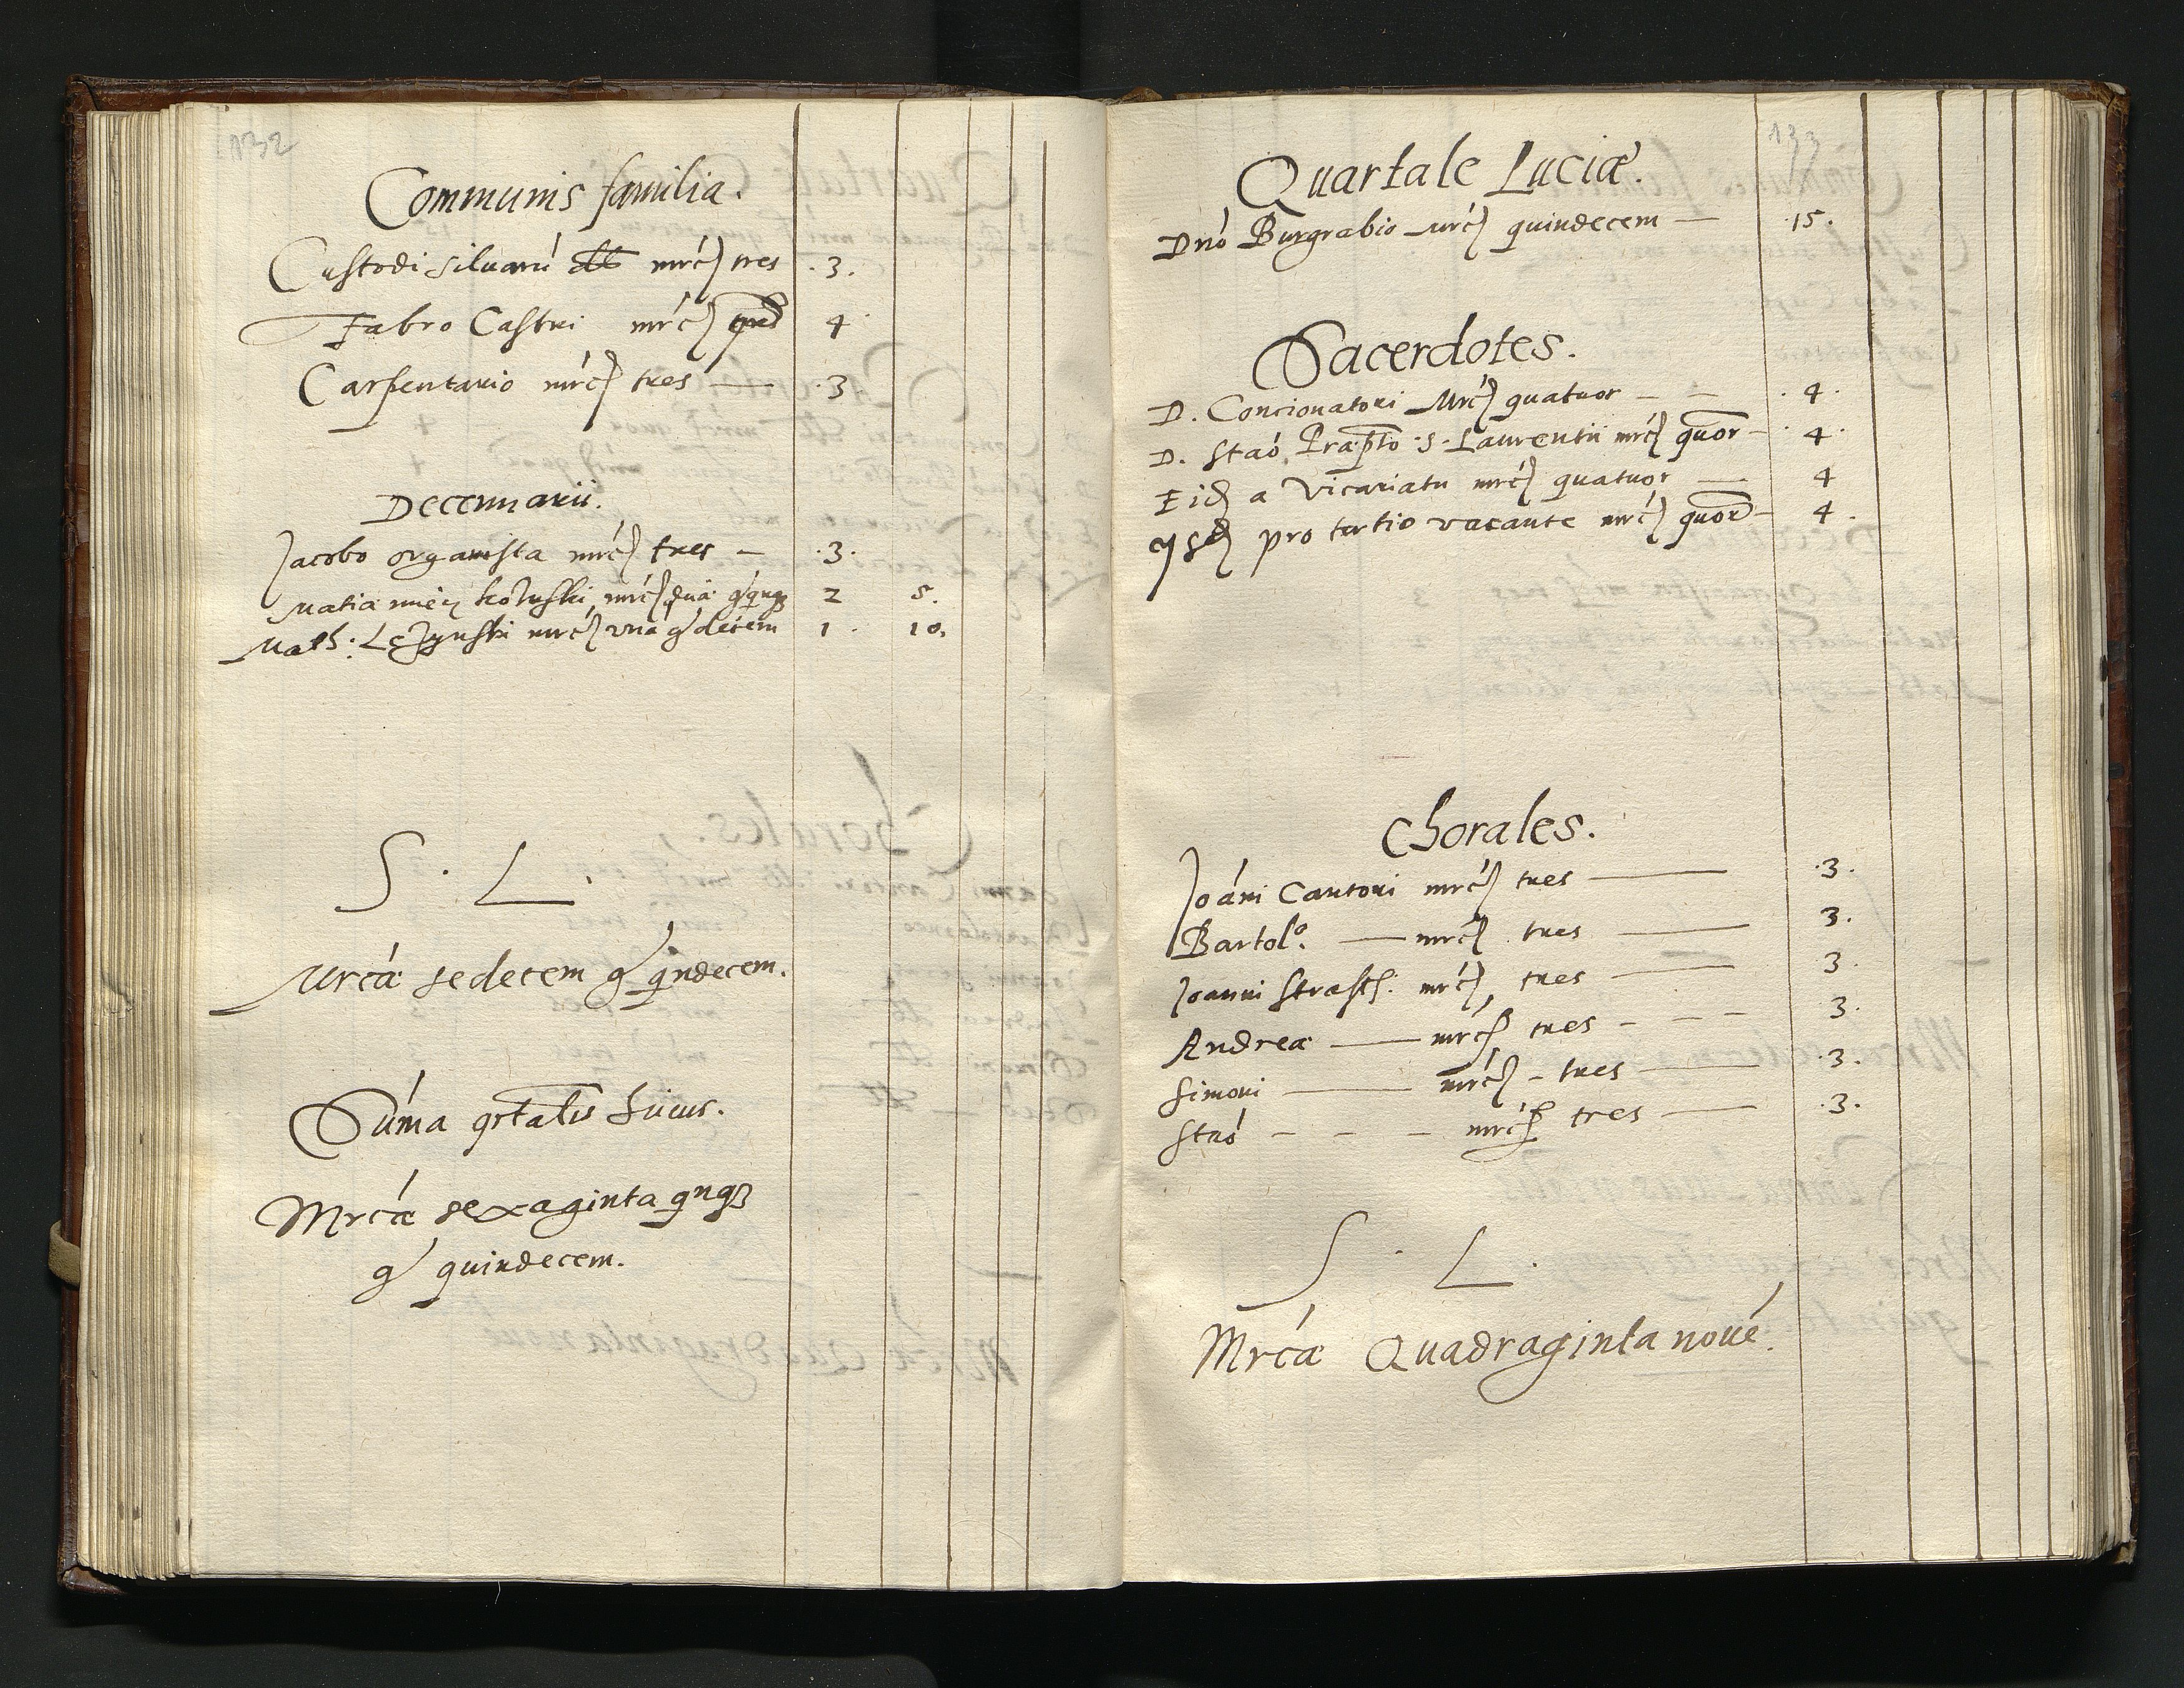 132
Communis familia.
Custodi siluarú mrc tres .3.
Fabro Castri mrc 4
Carpentario mrc tres — .3
Decennarii.
Jacobo organista mrc tres — .3.
Matiae 2 5.
Math: mrc vná gr decem 1. 10.
S. L.
Mrcae sedecem gr qndecem.
Súma qrtalis huius.
Mrcae sexaginta qnq3
gr quindecem.
133
Quartale Luciae.
Dnó Burgrabio mrc quindecem — .15.
Sacerdotes.
D. Concionatori Mrc quatuor - - .4.
D. Staó Praepto S. Laurentii mrc quor — .4.
Eid a Vicariatu mrc quatuor — 4
pro tertio vacante mrc quor — 4.
Chorales.
Joáni Cantori mrc tres — .3.
Bartolo. — mrc tres — 3.
Joanni mrc tres — 3.
Andreae — mrc tres - - - - 3.
Simoni — mrc - tres — .3.
Staó - - - mrc tres — .3.
S. L.
Mrcae Quadraginta noué.